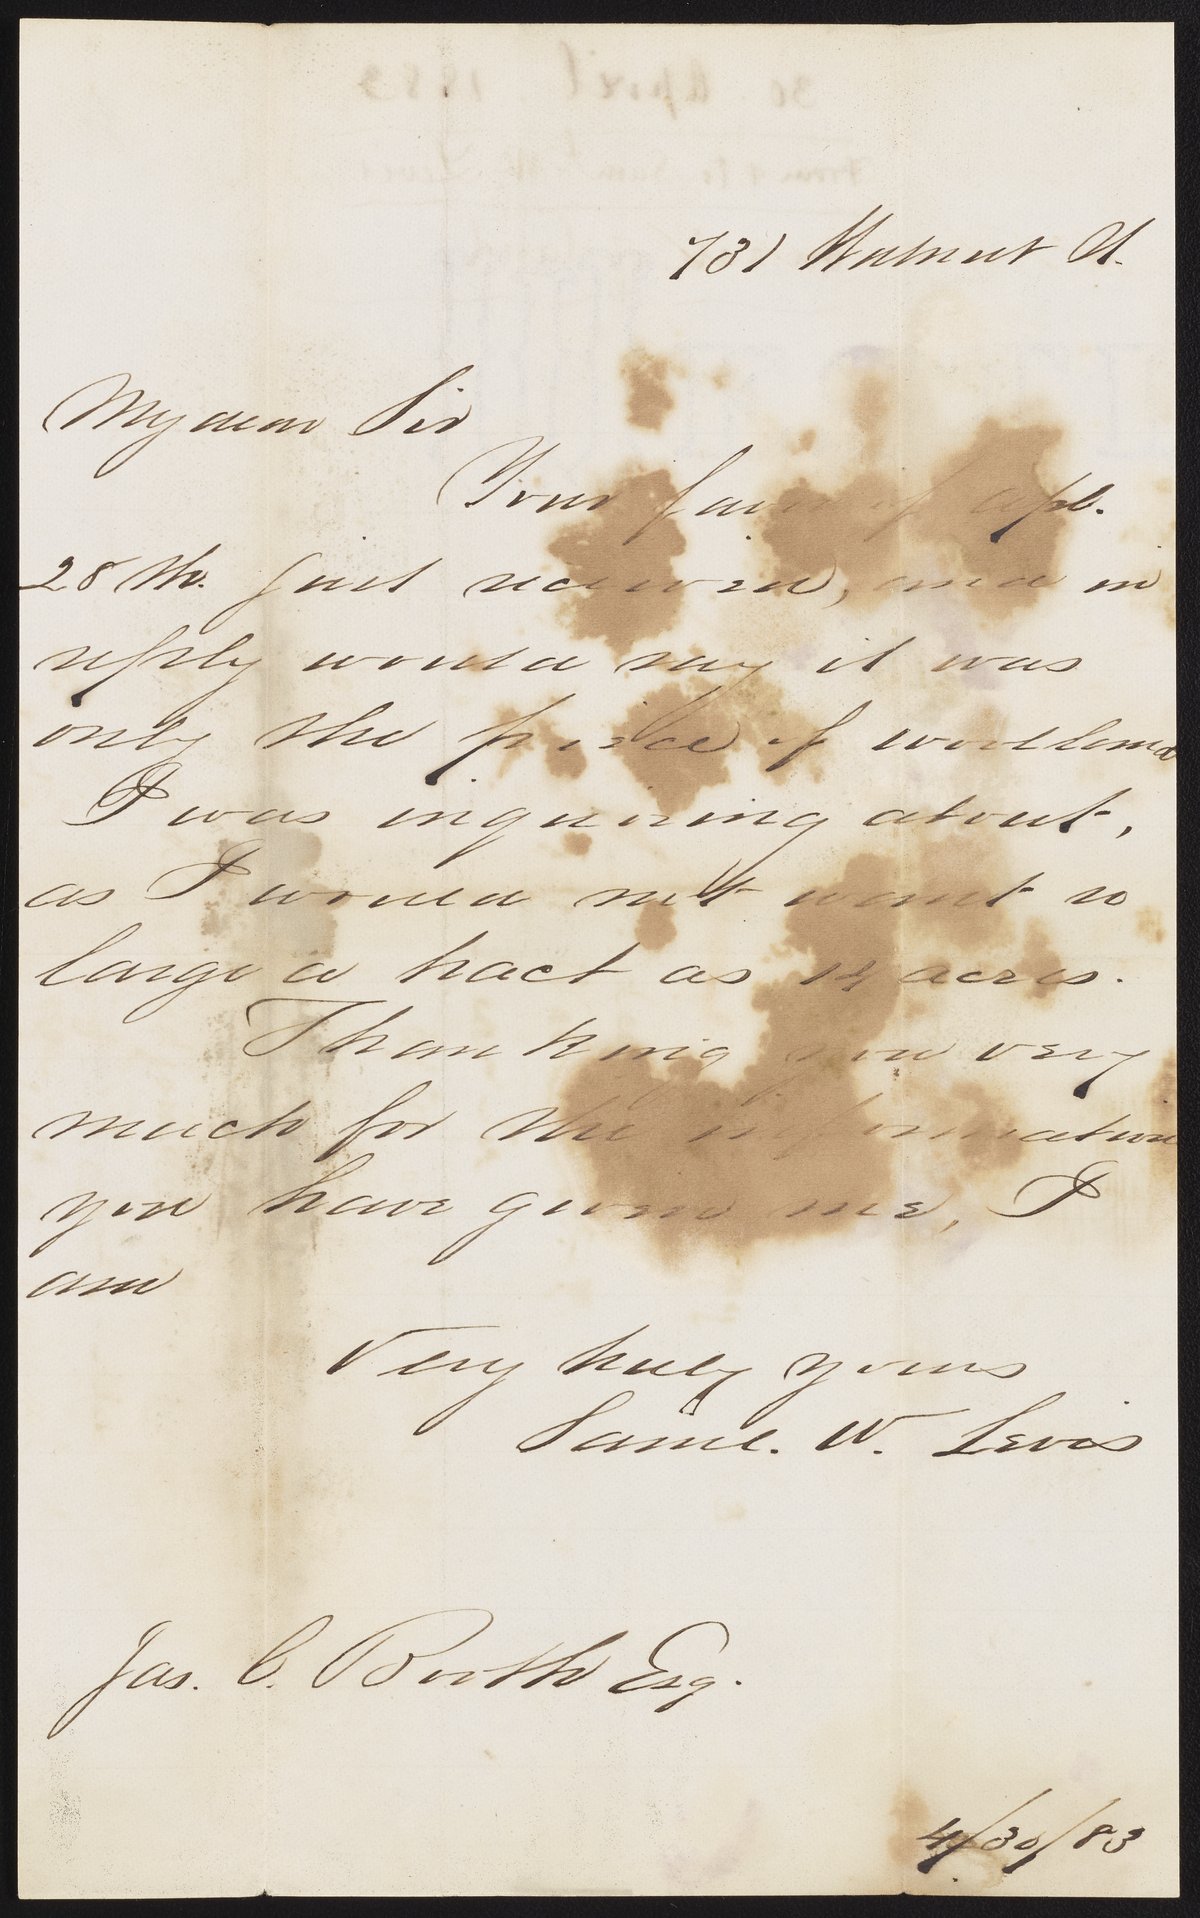 731 Walnut St.
My dear Sir
Your favor of Apl.
28th. just received, and in
reply would say it was
only the price of woodland
I was inquiring about,
as I would not want so
large a tract as 14 acres.
Thanking you very
much for the information
you have given me, I
am
Very truly yours
Saml. W. Levis
Jas. C. Booth Esq.
4/30/83